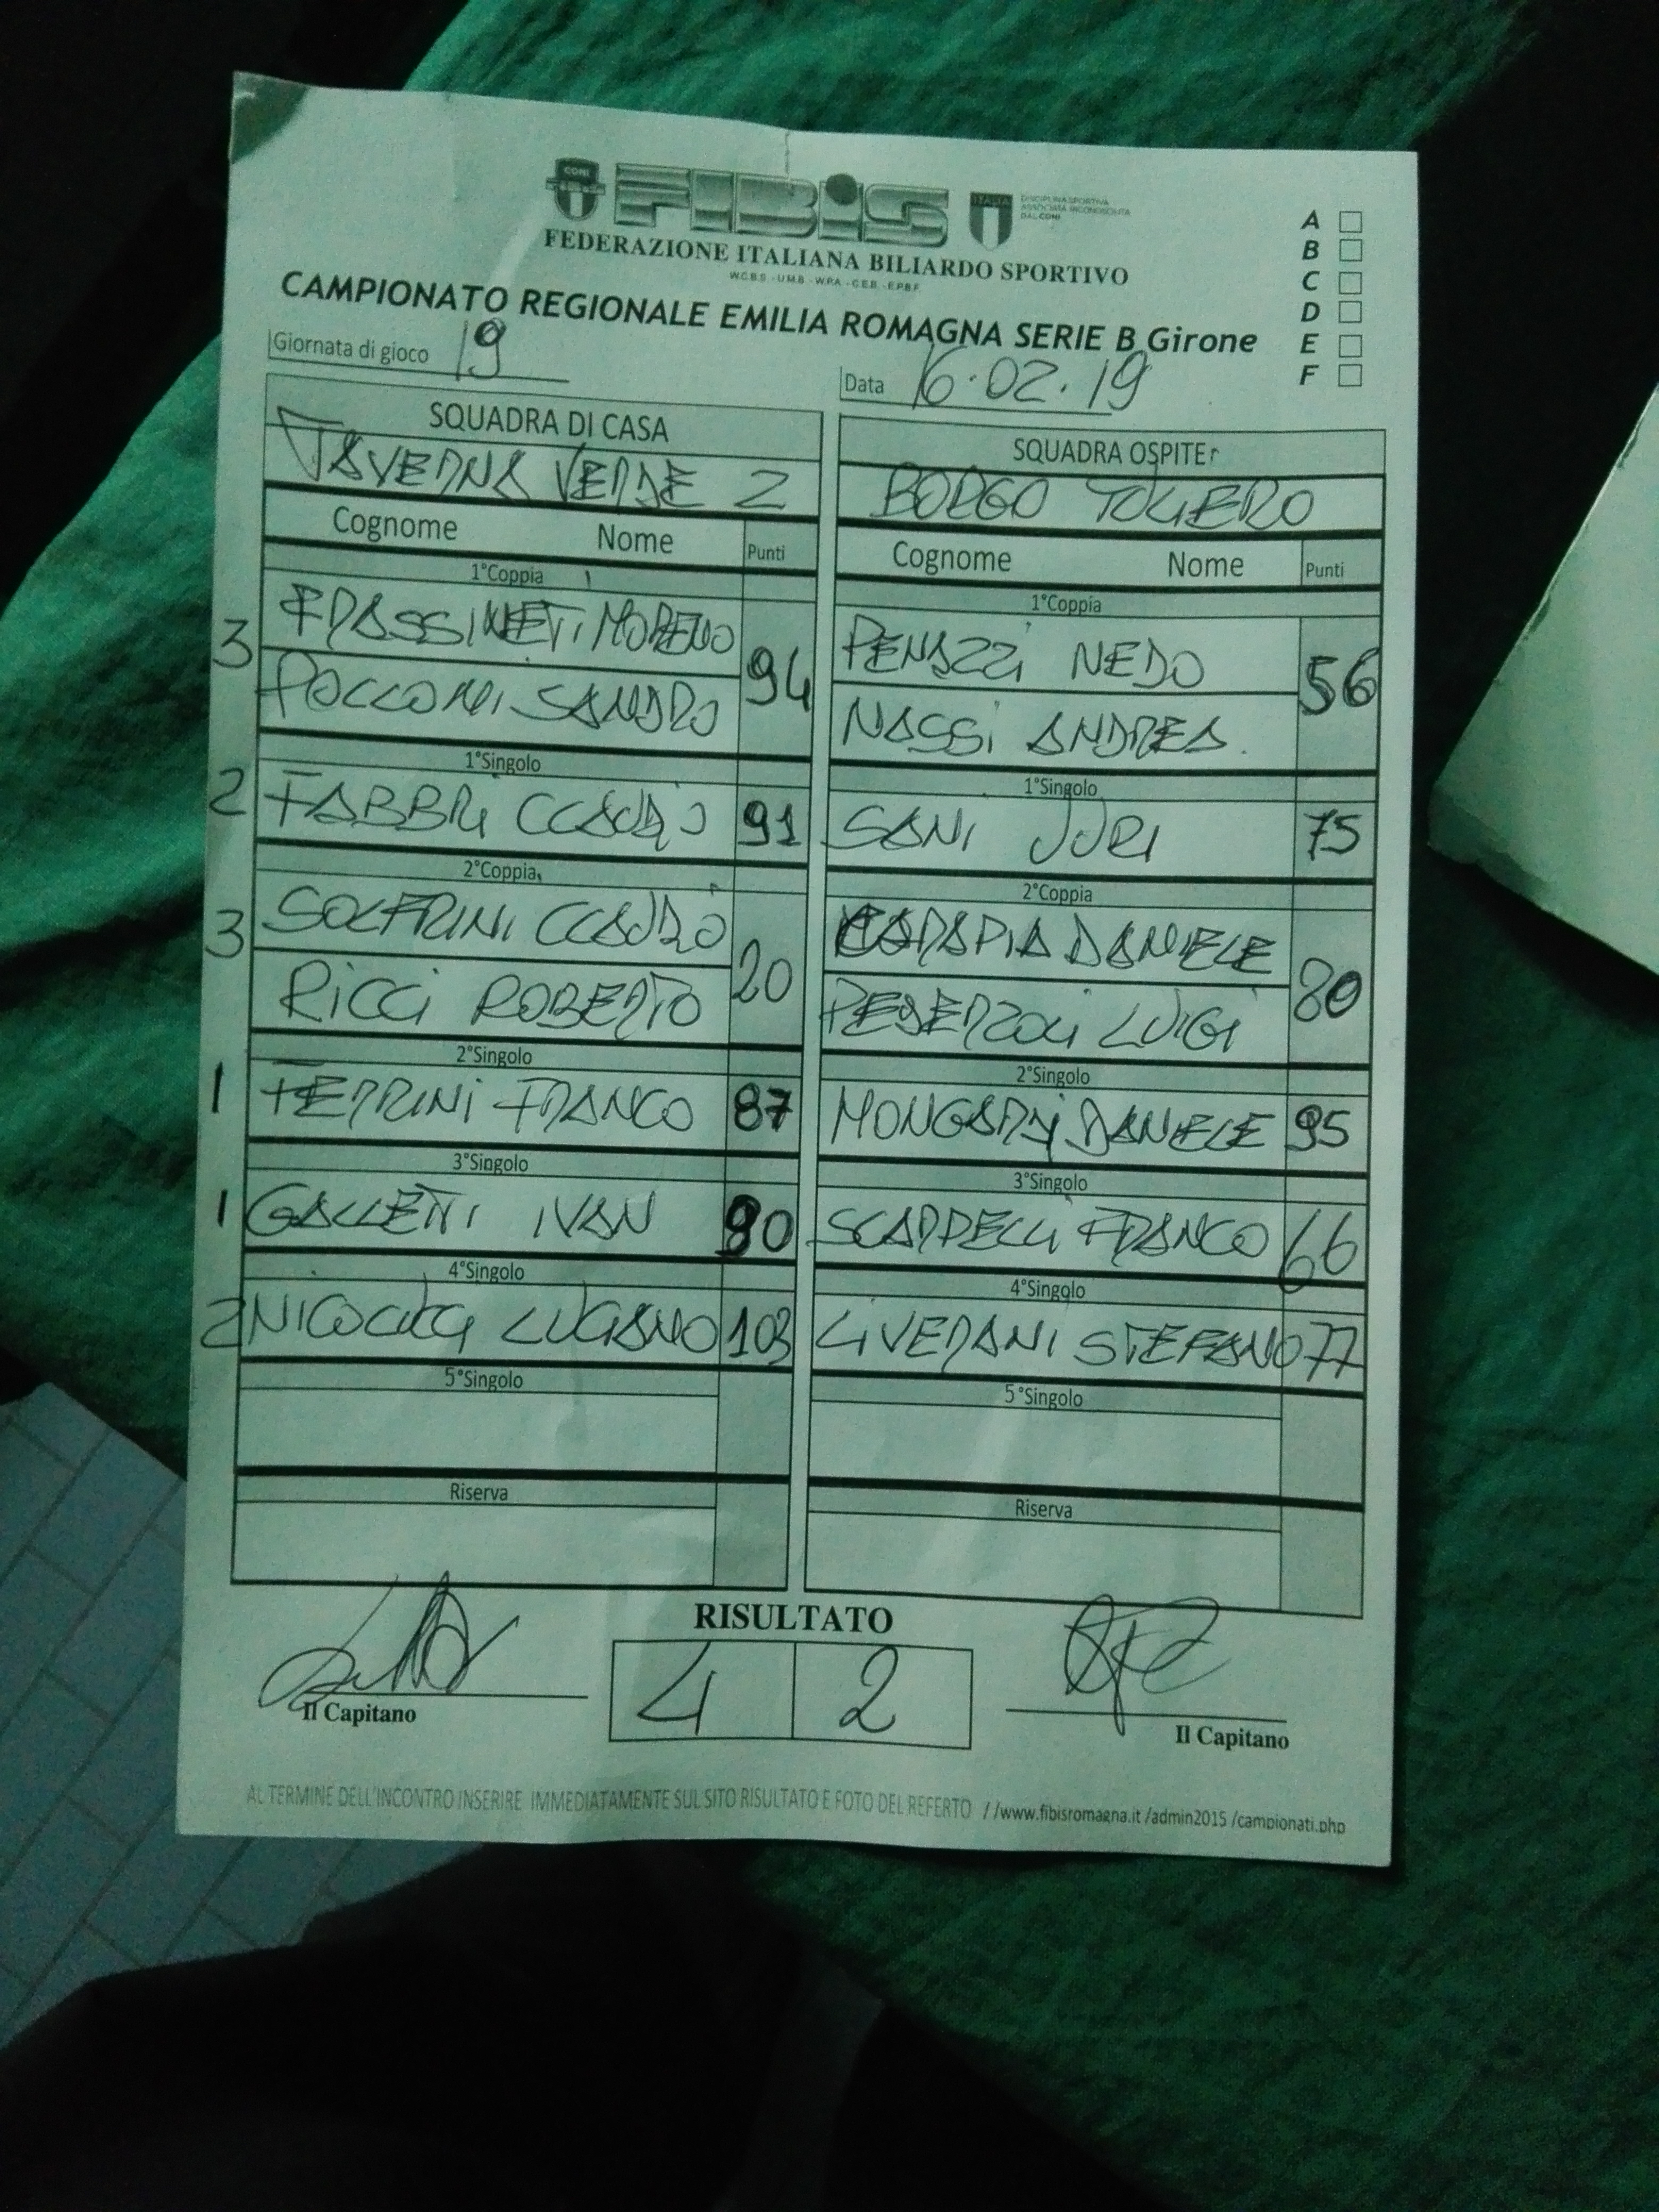 CONI
FIBiS
ITALIA
DISCIPLINA SPORTIVA
ASSOCIATA RICONOSCIUTA
DAL CONI
FEDERAZIONE ITALIANA BILIARDO SPORTIVO
W.C.B.S - U.M.B - W.P.A - C.E.B - E.P.B.F.
CAMPIONATO REGIONALE EMILIA ROMAGNA SERIE B Girone
A
B
C
D
E
F
Giornata di gioco 19
Data 16.02.19
SQUADRA DI CASA SQUADRA OSPITE
TAVERNA VERDE 2 BORGO TULIERO
Cognome Nome Punti Cognome Nome Punti
1°Coppia 1°Coppia
3 FRASSINETI MORENO 94 PENAZZI NEDO 56
SANDRO NASSI ANDREA.
1°Singolo 1°Singolo
2 FABBRI CLAUDIO 91 SANI JURI 75
2°Coppia 2°Coppia
3 SOLFRINI CLAUDIO 20 DANIELE 80
RICCI ROBERTO PEDERZOLI LUIGI
2°Singolo 2°Singolo
1 FERRINI FRANCO 87 MONGARDI DANIELE 95
3°Singolo 3°Singolo
1 GALLETTI IVAN 90 SCARPELLI FRANCO 66
4°Singolo 4°Singolo
2 LUCIANO 103 LIVERANI STEFANO 77
5°Singolo 5°Singolo
Riserva Riserva
RISULTATO
4 2
Il Capitano Il Capitano
AL TERMINE DELL'INCONTRO INSERIRE IMMEDIATAMENTE SUL SITO RISULTATO E FOTO DEL REFERTO //www.fibisromagna.it /admin2015 /campionati.php